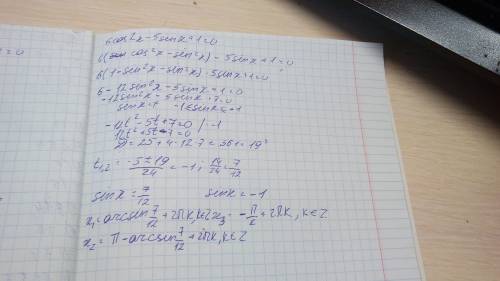 6cos2x-5sinx+1=0
6(cos²x-sin²x)-5sinx+1=0
6(1-sin²x-sin²x)-5sinx+1=0
6-12sin²x-5sinx+1=0
-12sin²x-5sinx+7=0
sinx=t -1≤sinx≤1
-12t²-5t+7=0 /·-1
12t²+5t-7=0
D=25+4·12·7=361=19²
t₁,₂=-5±19/24=-1; 14/24=7/12
sinx=7/12 sinx=-1
x₁=arcsin7/12+2πk,k∈Z x₃=-π/2+2πk,k∈Z
x₂=π-arcsin7/12+2πk,k∈Z